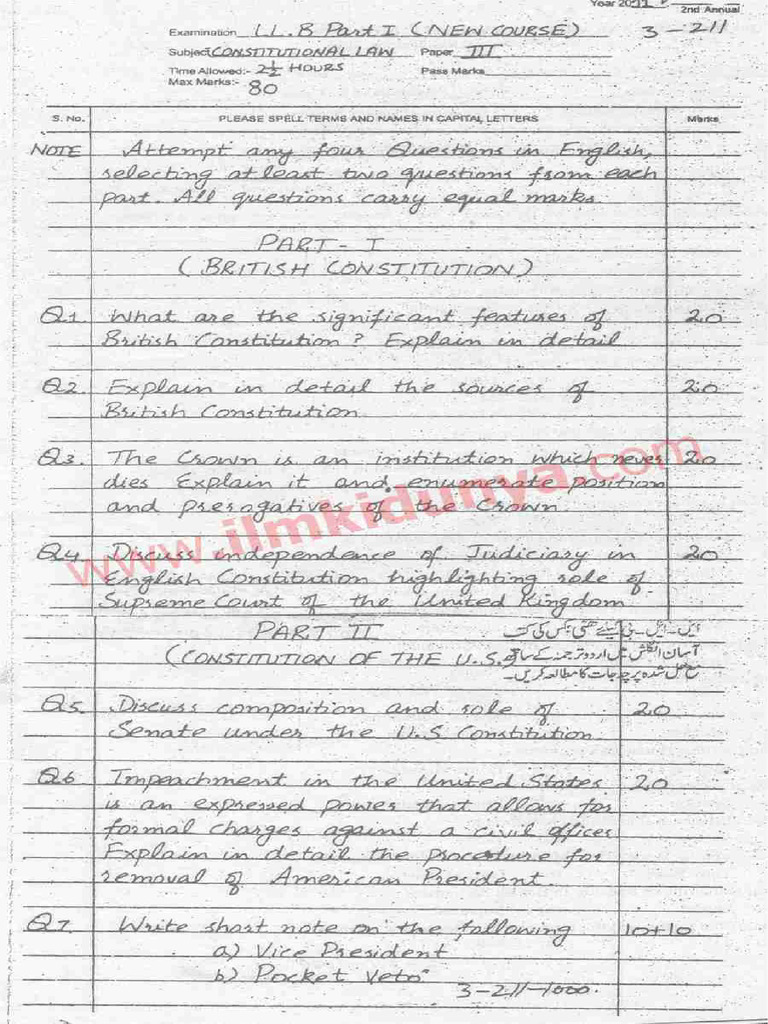 Year 2011 2nd Annual
Examination LL.B Part I (NEW COURSE) 3-211
Subject CONSTITUTIONAL LAW Paper III
Time Allowed:- 2½ HOURS Pass Marks
Max Marks:- 80
S. No. PLEASE SPELL TERMS AND NAMES IN CAPITAL LETTERS Marks
NOTE Attempt any four Questions in English,
selecting at least two questions from each
part. All questions carry equal marks.
PART-I
(BRITISH CONSTITUTION)
Q1. What are the significant features of 20
British Constitution? Explain in detail
Q2. Explain in detail the sources of 20
British Constitution.
Q3. The Crown is an institution which never 20
dies Explain it and enumerate position
and prerogatives of the Crown
www.ilmkidunya.com
Q4. Discuss independence of Judiciary in 20
English Constitution highlighting role of
Supreme Court of the United Kingdom
PART II
(CONSTITUTION OF THE U.S.
آسان انگلش میں اردو ترجمہ کے ساتھ
مع حل شدہ پرچہ جات کا مطالعہ کریں۔
Q5. Discuss composition and role of 20
Senate under the U.S Constitution.
Q6 Impeachment in the United States 20
is an expressed power that allows for
formal charges against a civil officer
Explain in detail the procedure for
removal of American President.
Q7. Write short note on the following 10+10
a) Vice President
b) Pocket Veto
3-211-1000.